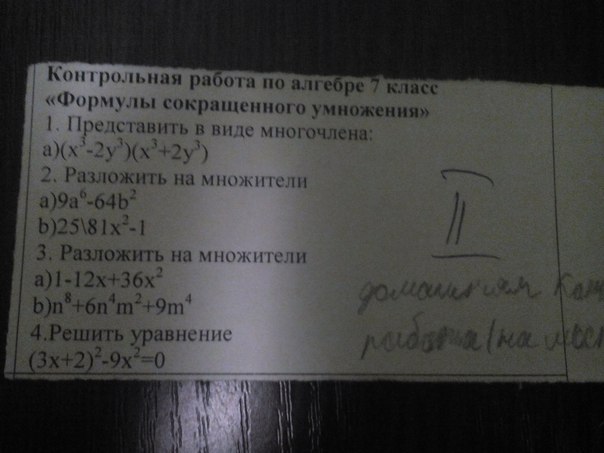 Контрольная работа по алгебре 7 класс
«Формулы сокращенного умножения»
1. Представить в виде многочлена:
а)(x³-2y³)(x³+2y³)
2. Разложить на множители
а)9a⁶-64b²
b)25\81x²-1
3. Разложить на множители
а)1-12x+36x²
b)n⁸+6n⁴m²+9m⁴
4.Решить уравнение
(3x+2)²-9x²=0
II
домашняя
работа (на